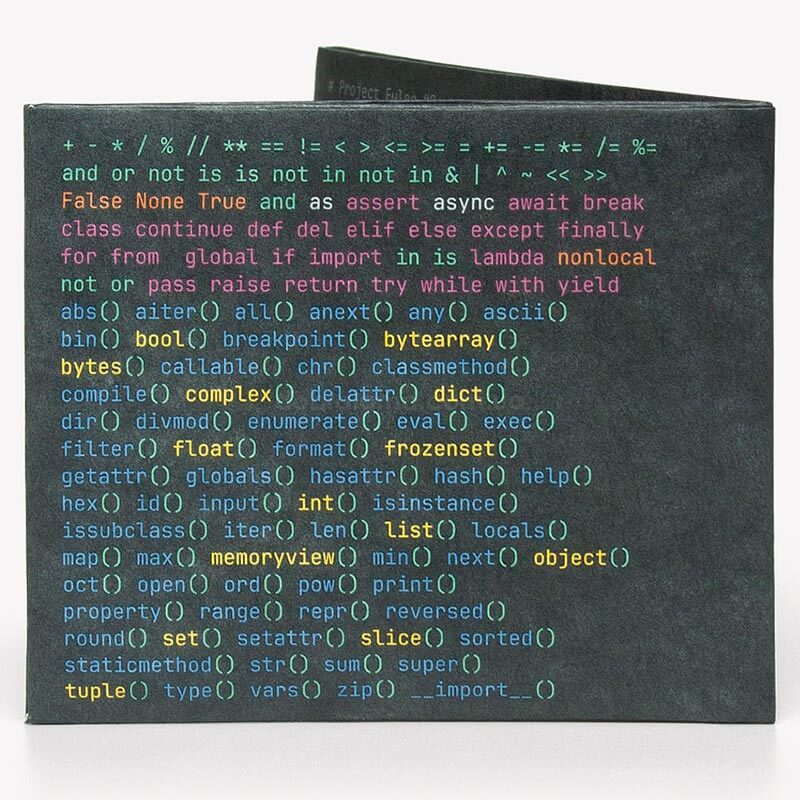 # Project Euler #8
+ - * / % // ** == != < > <= >= = += -= *= /= %=
and or not is is not in not in & | ^ ~ << >>
False None True and as assert async await break
class continue def del elif else except finally
for from global if import in is lambda nonlocal
not or pass raise return try while with yield
abs() aiter() all() anext() any() ascii()
bin() bool() breakpoint() bytearray()
bytes() callable() chr() classmethod()
compile() complex() delattr() dict()
dir() divmod() enumerate() eval() exec()
filter() float() format() frozenset()
getattr() globals() hasattr() hash() help()
hex() id() input() int() isinstance()
issubclass() iter() len() list() locals()
map() max() memoryview() min() next() object()
oct() open() ord() pow() print()
property() range() repr() reversed()
round() set() setattr() slice() sorted()
staticmethod() str() sum() super()
tuple() type() vars() zip() __import__()